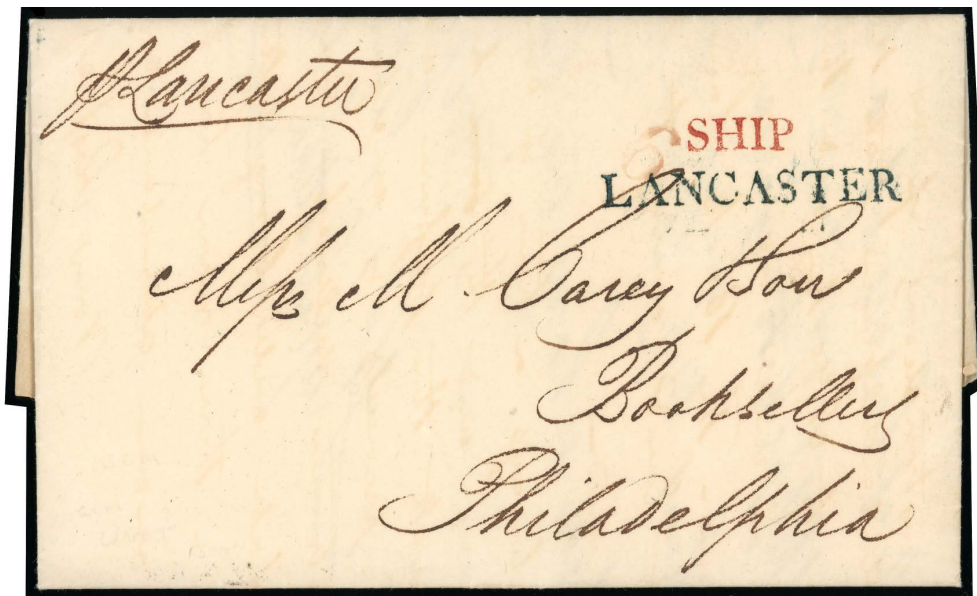 p Lancaster
6
SHIP
LANCASTER
Messrs M Carey & Sons
Booksellers
Philadelphia